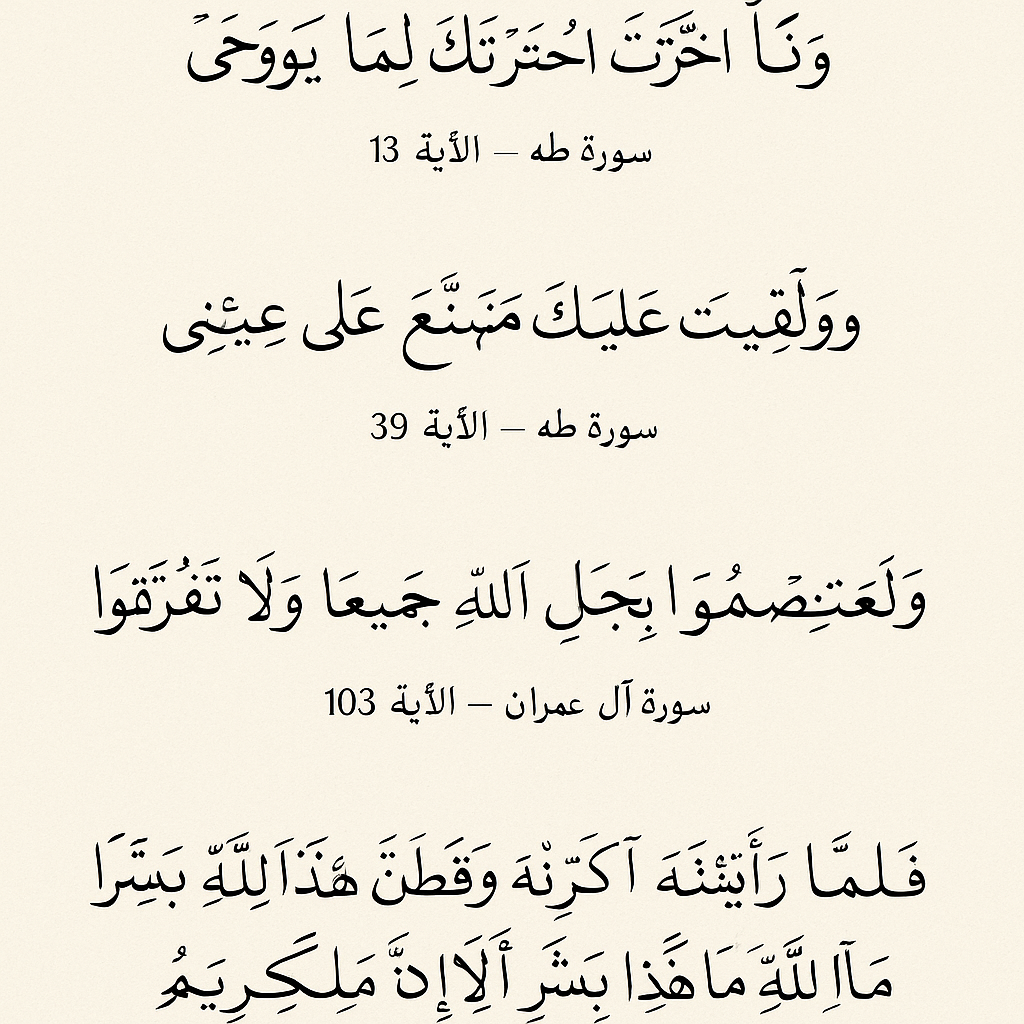 وَنَاْ اخَّرَتَ احُتَرْتَكَ لِمَا يَووَحَى
سورة طه – الأية 13
ووَلَقِيتَ عَليَكَ مَنَهنَّعَ عَلى عِيئنِى
سورة طه – الأية 39
وَلَعَتنِصْمُوَا بِجَلِ اَللّهِ جَمِيعَا وَلَا تَفُرَقوَا
سورة آل عمران – الأية 103
فَلمَّا رَأَيْنَهَ آكَرِّنْهَ وَقَطَنَ هَّذَا لِلَّهِّ بَشَرَا
مَآ اِللَّهِّ مَا هَذِا بَشَرِ أَلَا إِنَّ مَلِكَرِيَمُ